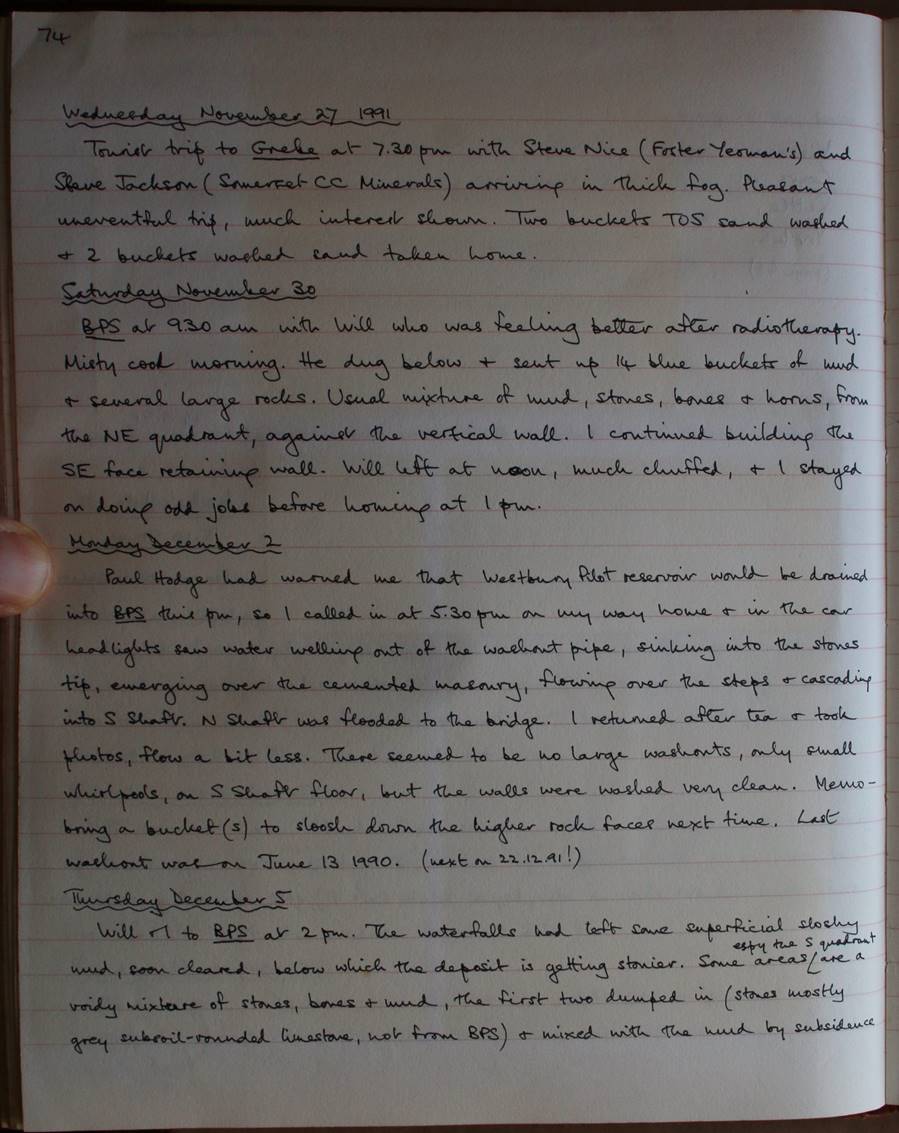 74
Wednesday November 27 1991
Tourist trip to Grebe at 7.30 pm with Steve Nice (Foster Yeoman's) and
Steve Jackson (Somerset CC Minerals) arriving in thick fog. Pleasant
uneventful trip, much interest shown. Two buckets TOS sand washed
+ 2 buckets washed sand taken home.
Saturday November 30
BPS at 9.30 am with Will who was feeling better after radiotherapy.
Misty cool morning. He dug below + sent up 14 blue buckets of mud
+ several large rocks. Usual mixture of mud, stones, bones + horns, from
the NE quadrant, against the vertical wall. I continued building the
SE face retaining wall. Will left at noon, much chuffed, + I stayed
on doing odd jobs before homing at 1 pm.
Monday December 2
Paul Hodge had warned me that Westbury Pilot reservoir would be drained
into BPS this pm, so I called in at 5.30 pm on my way home + in the car
headlights saw water welling out of the washout pipe, sinking into the stones
tip, emerging over the cemented masonry, flowing over the steps + cascading
into S Shaft. N Shaft was flooded to the bridge. I returned after tea + took
photos, flow a bit less. There seemed to be no large washouts, only small
whirlpools, on S Shaft floor, but the walls were washed very clean. Memo-
bring a bucket(s) to sloosh down the higher rock faces next time. Last
washout was on June 13 1990. (next on 22.12.91!)
Thursday December 5
Will + I to BPS at 2 pm. The waterfalls had left some superficial sloshy
mud, soon cleared, below which the deposit is getting stonier. Some areas/espy the S quadrant are a
voidy mixture of stones, bones + mud, the first two dumped in (stones mostly
grey subsoil-rounded limestone, not from BPS) + mixed with the mud by subsidence